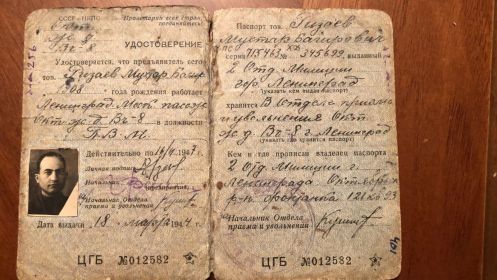 СССР - НКПС
Пролетарии всех стран,
соединяйтесь!
Окт
ж-д
Вч-8
УДОСТОВЕРЕНИЕ
Удостоверяется, что предъявитель сего
тов. Ризаев Мухтар
1908 года рождения работает
Ленинград Моск
Окт ж-д Вч-8 в должности
П.В.М.
Действительно по 16/ 1947
Личная подпись
Начальник
Начальник Отдела
приема и увольнения
Дата выдачи 18 марта 1947
ЦГБ №012582
Паспорт тов. Ризаев
Мухтар Багирович
серия № 345699 выданный
2 Отд. Милиции
г. Ленинград
(указать кем выдан паспорт)
хранится В отделе приема
и увольнения Окт.
ж д Вч-8 г. Ленинград
(указать где хранится паспорт)
Кем и где прописан владелец паспорта
2 Отд Милиции г.
Ленинграда Октябрьск
р-н Фонтанка 121 кв 23
Начальник Отдела
приема и увольнений
ЦГБ №012582